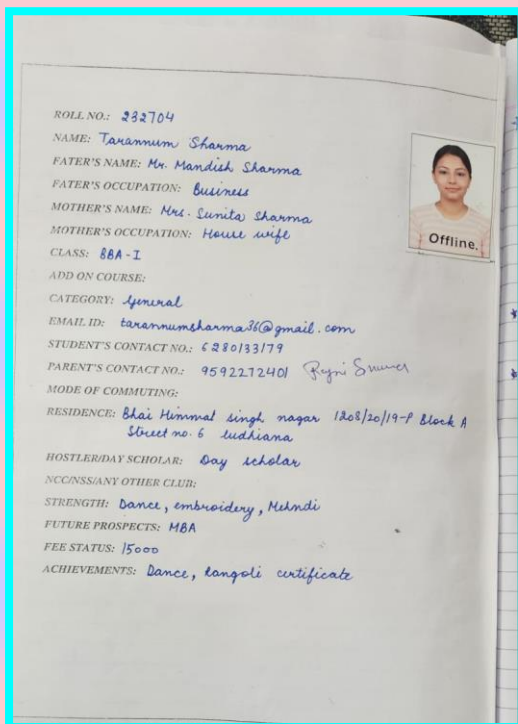 ROLL NO.: 232704
NAME: Tarannum Sharma
FATER'S NAME: Mr. Mandish Sharma
FATER'S OCCUPATION: Business
MOTHER'S NAME: Mrs. Sunita Sharma
MOTHER'S OCCUPATION: House wife
CLASS: BBA-I
ADD ON COURSE:
CATEGORY: General
EMAIL ID: tarannumsharma36@gmail.com
STUDENT'S CONTACT NO.: 6280133179
PARENT'S CONTACT NO.: 9592272401
MODE OF COMMUTING:
RESIDENCE: Bhai Himmat singh nagar 1208/20/19-P Block A
Street no. 6 ludhiana
HOSTLER/DAY SCHOLAR: Day scholar
NCC/NSS/ANY OTHER CLUB:
STRENGTH: Dance, embroidery, Mehndi
FUTURE PROSPECTS: MBA
FEE STATUS: 15000
ACHIEVEMENTS: Dance, rangoli certificate
Offline.